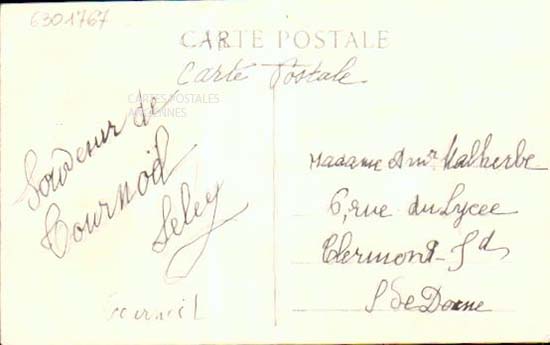 6301767
CARTE POSTALE
Carte Postale
CARTES POSTALES
ANCIENNES
Souvenir de
Tournoël
Madame & Mr Malherbe
6, rue du Lycée
Clermont-Fd
P. de Dome